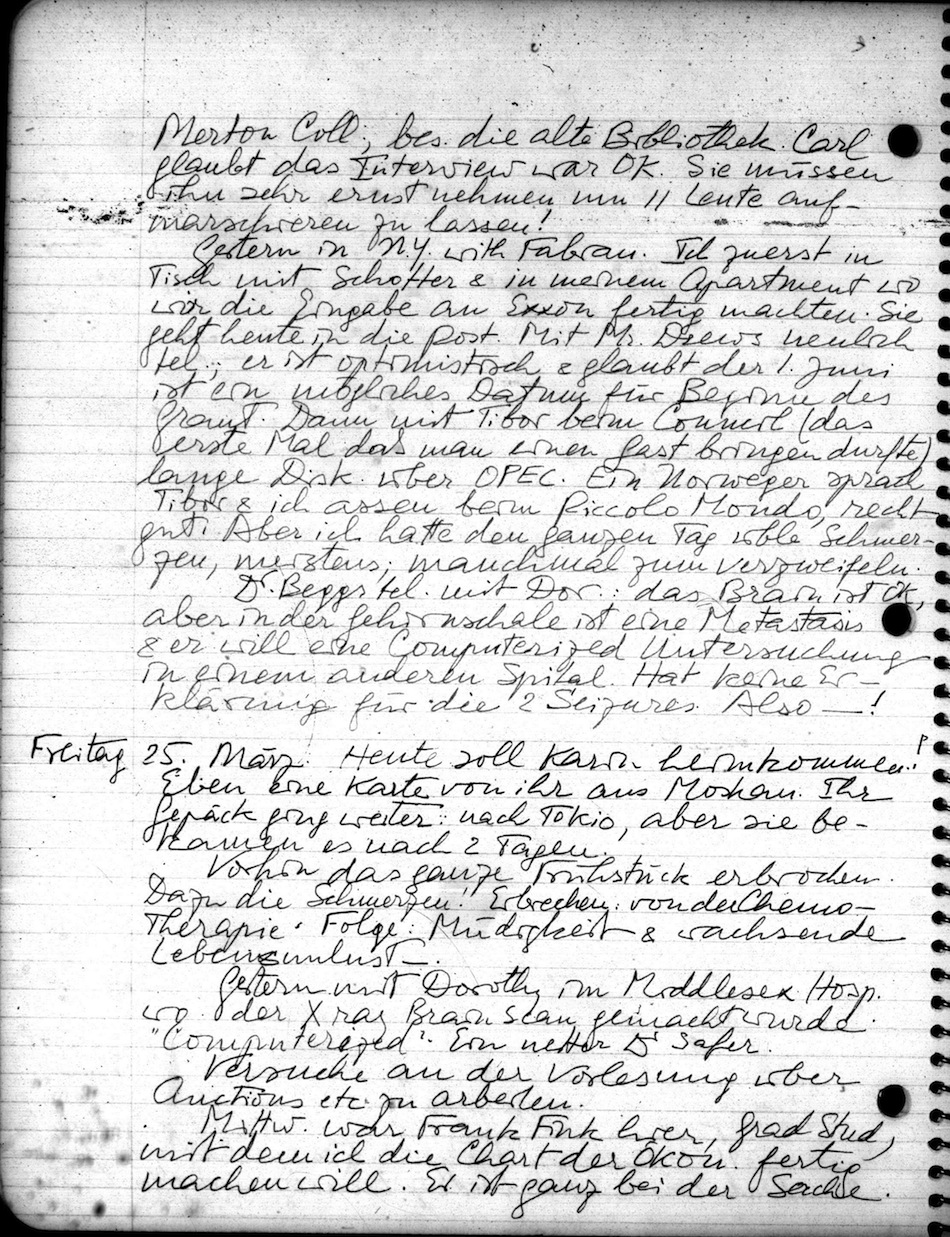 Merton Coll., bes. die alte Bibliothek. Carl
glaubt das Interview war OK. Sie müssen
ihn sehr ernst nehmen um 11 Leute auf-
marschieren zu lassen!
Gestern in N.Y. with Fabian. Ich zuerst in
Tisch mit Schotter & in meinem Apartment wo
wir die Eingabe an Exxon fertig machten. Sie
geht heute in die Post. Mit Mr. Drews neulich
tel.; er ist optimistisch & glaubt der 1. Juni
ist ein mögliches Datum für Beginn des
Grant. Dann mit Tibor beim Council (das
erste Mal dass man einen Gast bringen durfte)
lange Disk. über OPEC. Ein Norweger sprach
Tibor & ich assen beim Piccolo Mondo, recht
gut. Aber ich hatte den ganzen Tag üble Schmer-
zen, meistens; manchmal zum verzweifeln.
Dr. Beggs tel. mit Dor.: das Brain ist OK,
aber in der Gehirnschale ist eine Metastasis
& er will eine Computerized Untersuchung
in einem anderen Spital. Hat keine Er-
klärung für die 2 Seizures. Also —!
Freitag 25. März. Heute soll Karin heimkommen!
Eben eine Karte von ihr aus Moskau. Ihr
Gepäck ging weiter: nach Tokio, aber sie be-
kamen es nach 2 Tagen.
Vorhin das ganze Frühstück erbrochen.
Dazu die Schmerzen! Erbrechen: von der Chemo-
Therapie. Folge: Müdigkeit & wachsende
Lebensunlust —.
Gestern mit Dorothy im Middlesex Hosp.
wo der Xray Brain Scan gemacht wurde.
"Computerized". Ein netter Dr Safer.
Versuche an der Vorlesung über
Auctions etc. zu arbeiten.
Mittw. war Frank Fink hier, Grad Stud,
mit dem ich die Chart der Ökon. fertig
machen will. Er ist ganz bei der Sache.